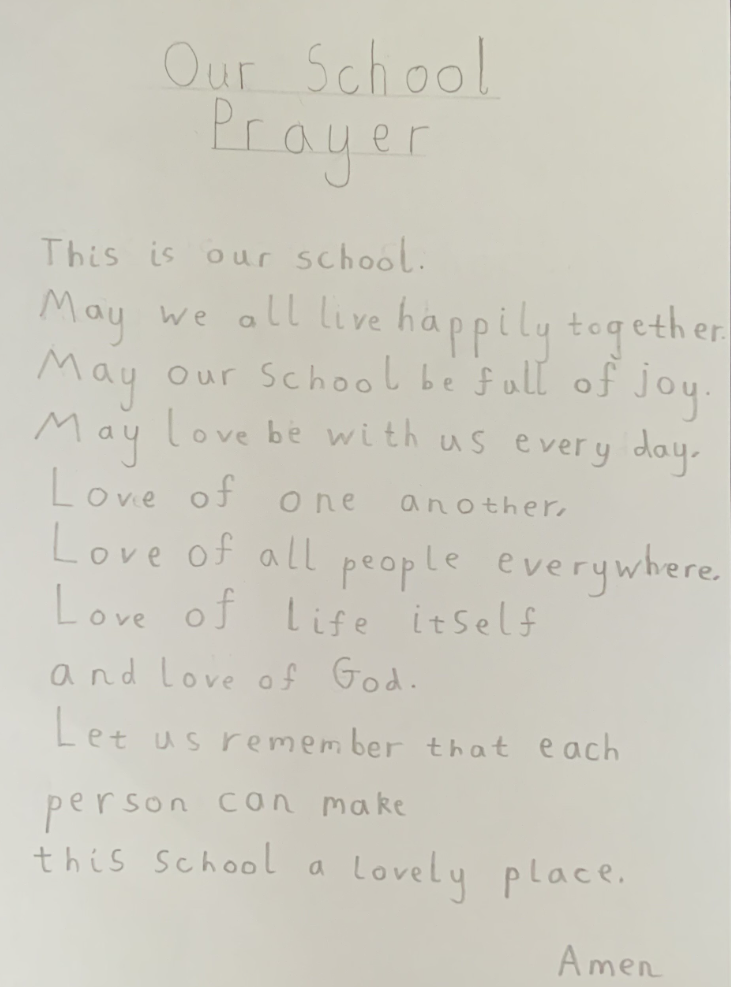 Our School
Prayer
This is our school.
May we all live happily together.
May our School be full of joy.
May love be with us every day.
Love of one another,
Love of all people everywhere.
Love of life itself
and love of God.
Let us remember that each
person can make
this school a lovely place.
Amen